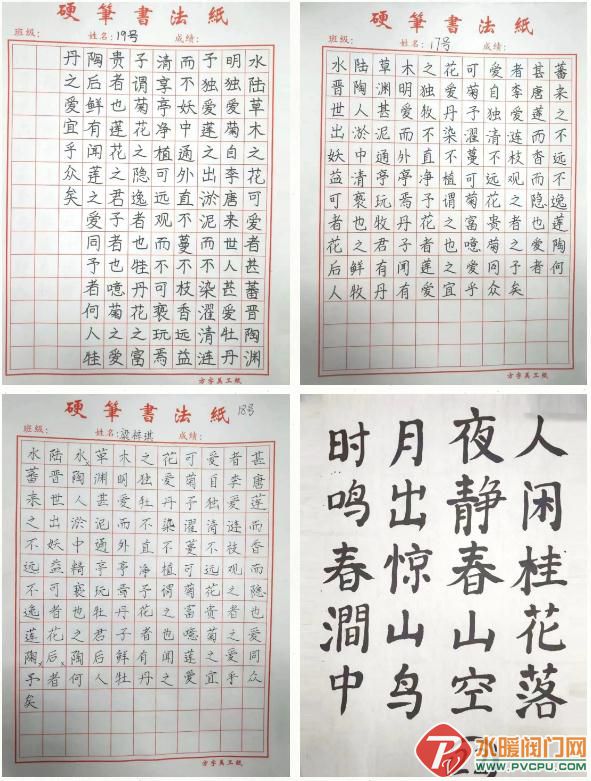 硬筆書法紙
班级: 姓名:19号 成绩:
水陆草木之花可爱者甚蕃晋陶渊
明独爱菊自李唐来世人甚爱牡丹
予独爱莲之出淤泥而不染濯清涟
而不妖中通外直不蔓不枝香远益
清享亭净植可远观而不可亵玩焉
子谓菊花之隐逸者也牲丹花之富
贵者也莲花之君子者也噫菊之爱
陶后鲜有闻莲之爱同予者何人牲
丹之爱宜乎众矣
方字美工纸
硬筆書法紙
班级: 姓名:17号 成绩:
水陆草木之花可爱者甚蕃
晋陶渊明独爱菊自李唐来
世人甚爱牧丹予独爱莲之
出淤泥而不染濯清涟而不
妖中通外直不蔓不枝香远
益清亭亭净植可远观而不
可亵玩焉予谓菊花之隐逸
者也牧丹花之富贵者也莲
花之君子者也噫菊之爱陶
后之鲜有闻莲之爱同予者何
人牧丹有爱宜乎众矣
方字美工纸
硬筆書法紙 18号
班级: 姓名:梁梓琪 成绩:
水陆水草木之花可爱者甚
蕃晋陶渊明独爱菊自李唐
来世人甚爱牡丹予独爱莲
之出淤泥而不染濯清涟而
不妖中通外直不蔓不枝香
远益精亭亭净植可远观而
不可亵玩焉予谓菊花之隐
逸者也牡丹花之富贵者也
莲花之君子者也噫菊之爱
陶后陶后鲜有闻莲之爱同
予者何人牡丹之爱宜乎众
矣
方字美工纸
人闲桂花落
夜静春山空
月出惊山鸟
时鸣春澗中
水暖阀门网
WWW.PVCPU.COM